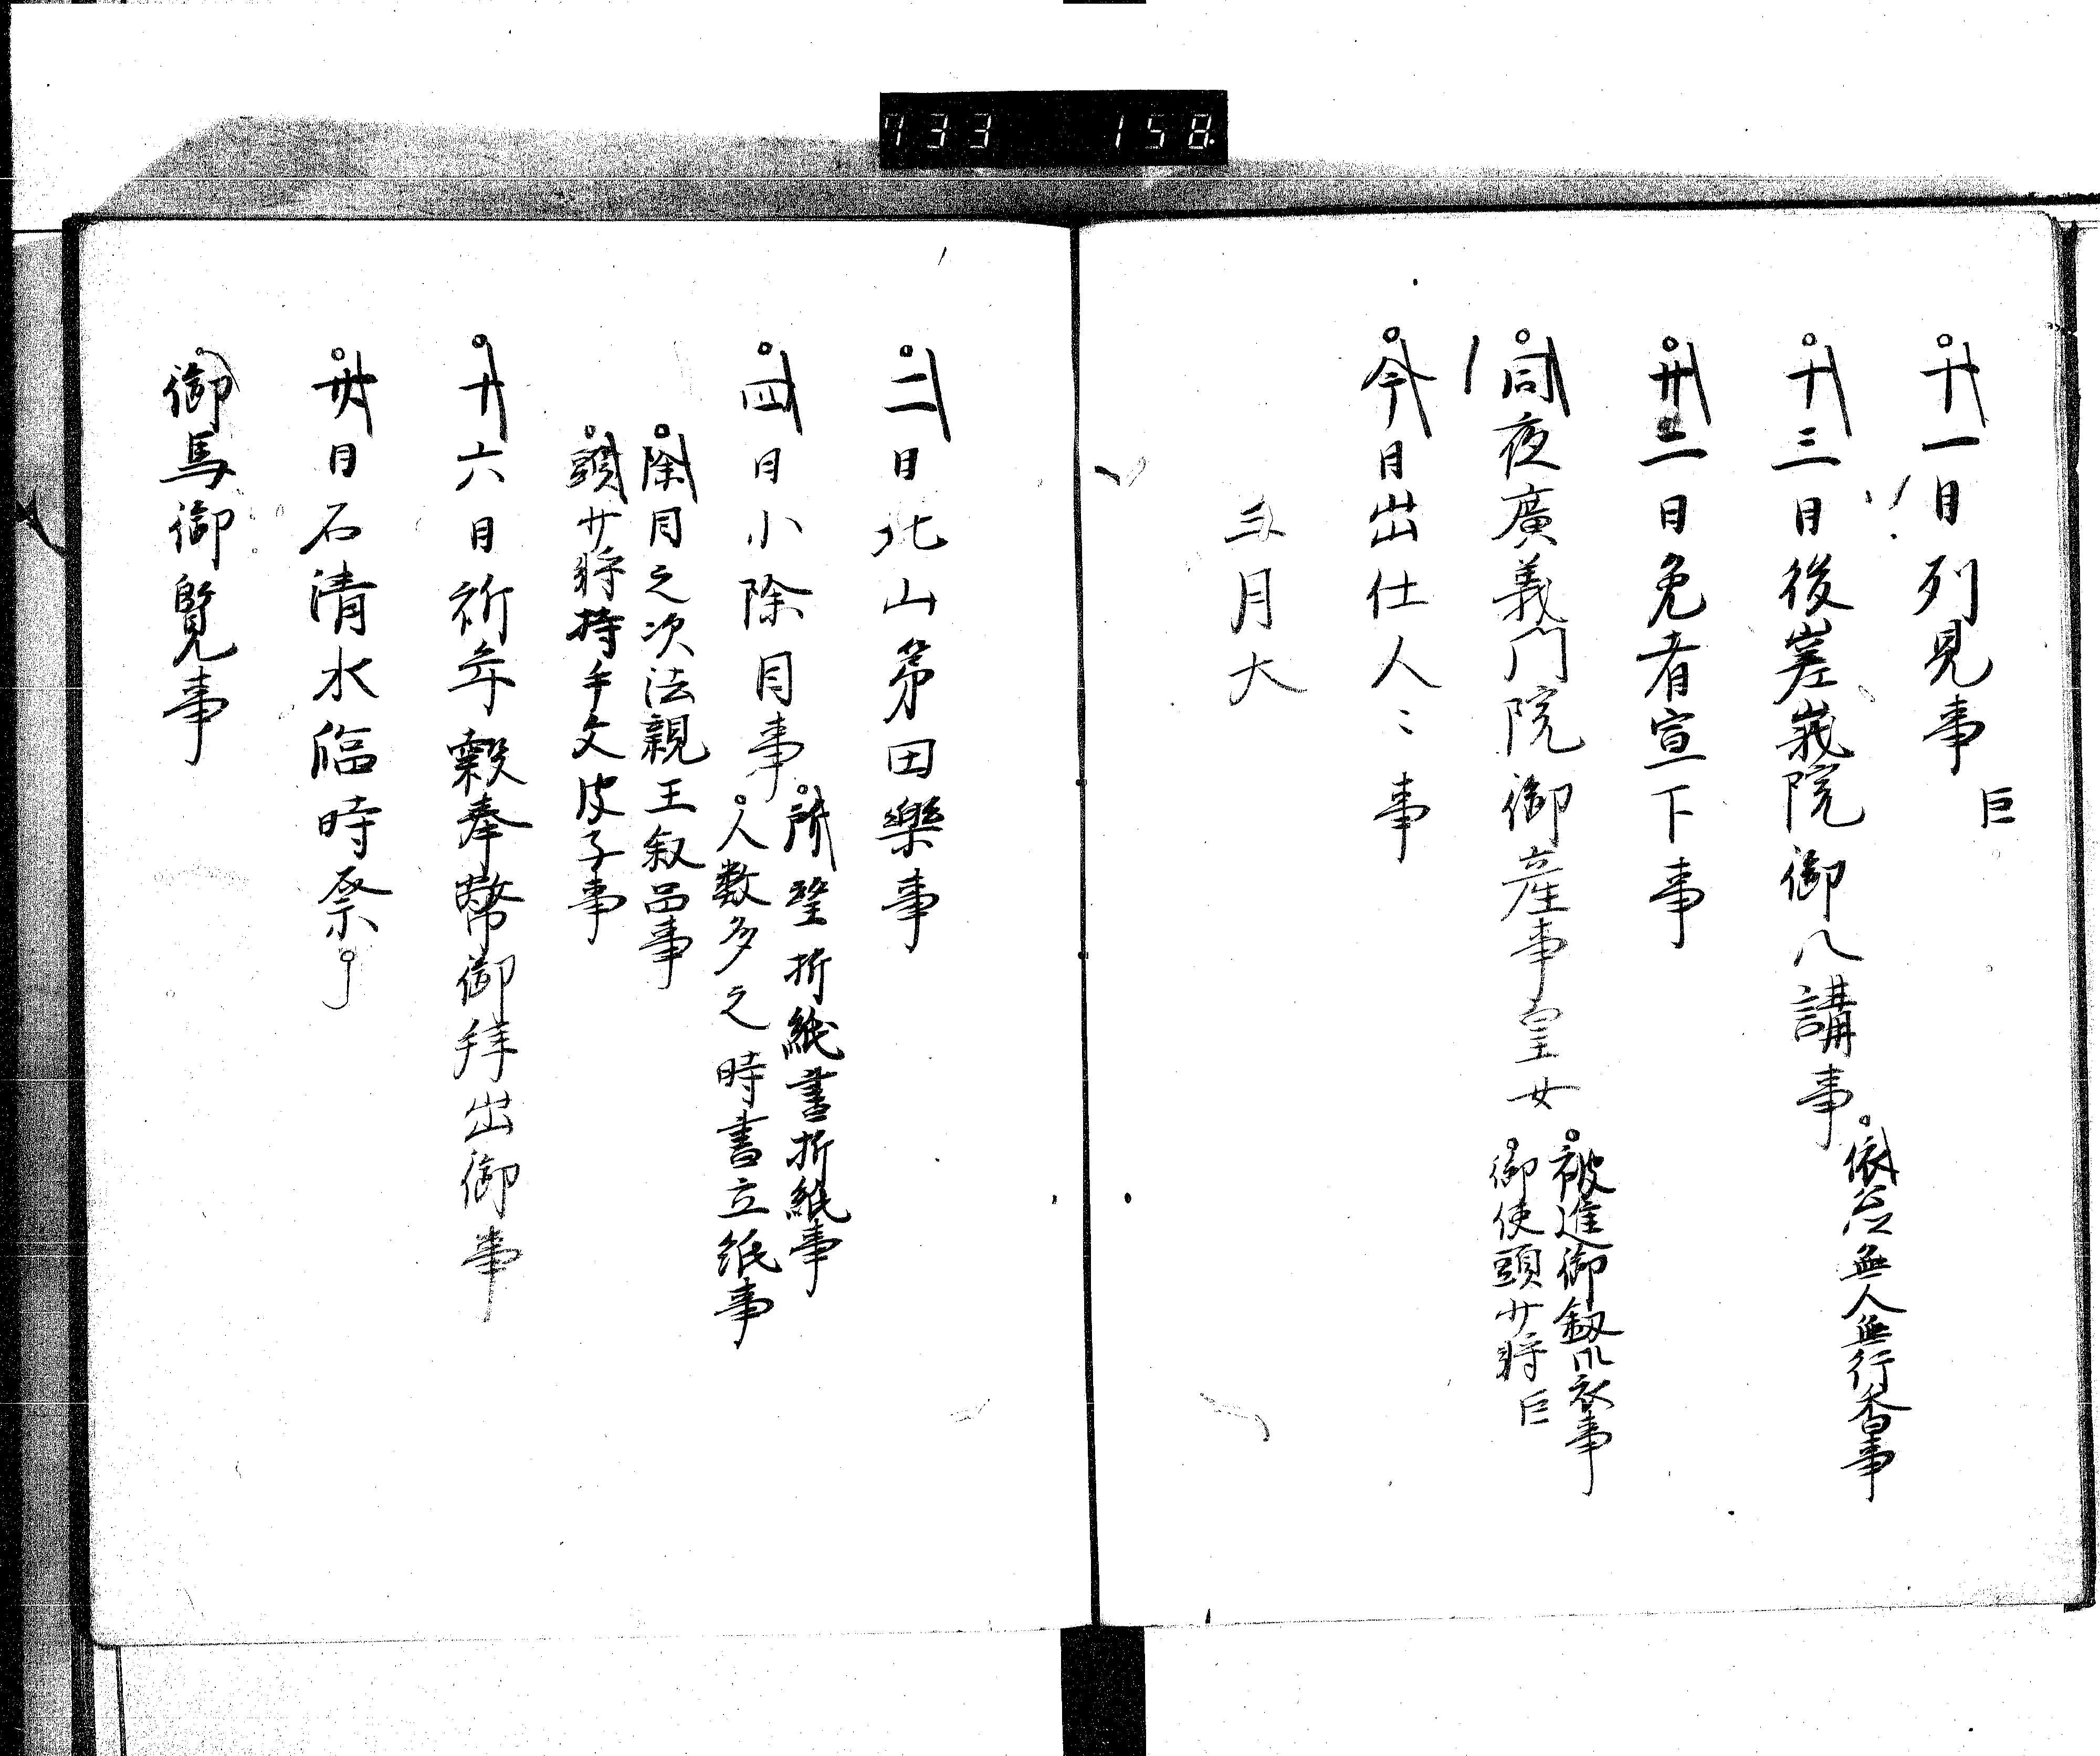 733 158
十一日列見事 巨
十三日後嵯峨院御八講事 依
無人無行香事
廿二日免者宣下事
同夜廣義門院御産事皇女 被進御釼御衣事
御使頭少将 巨
今日出仕人〻事
三月大
二日北山第田樂事
四日小除目事 所望折紙書折紙事
人数多之時書立紙事
除目之次法親王叙品事
頭少将持手文皮子事
廿六日祈年穀奉幣御拜出御事
日石清水臨時祭
御馬御覧事